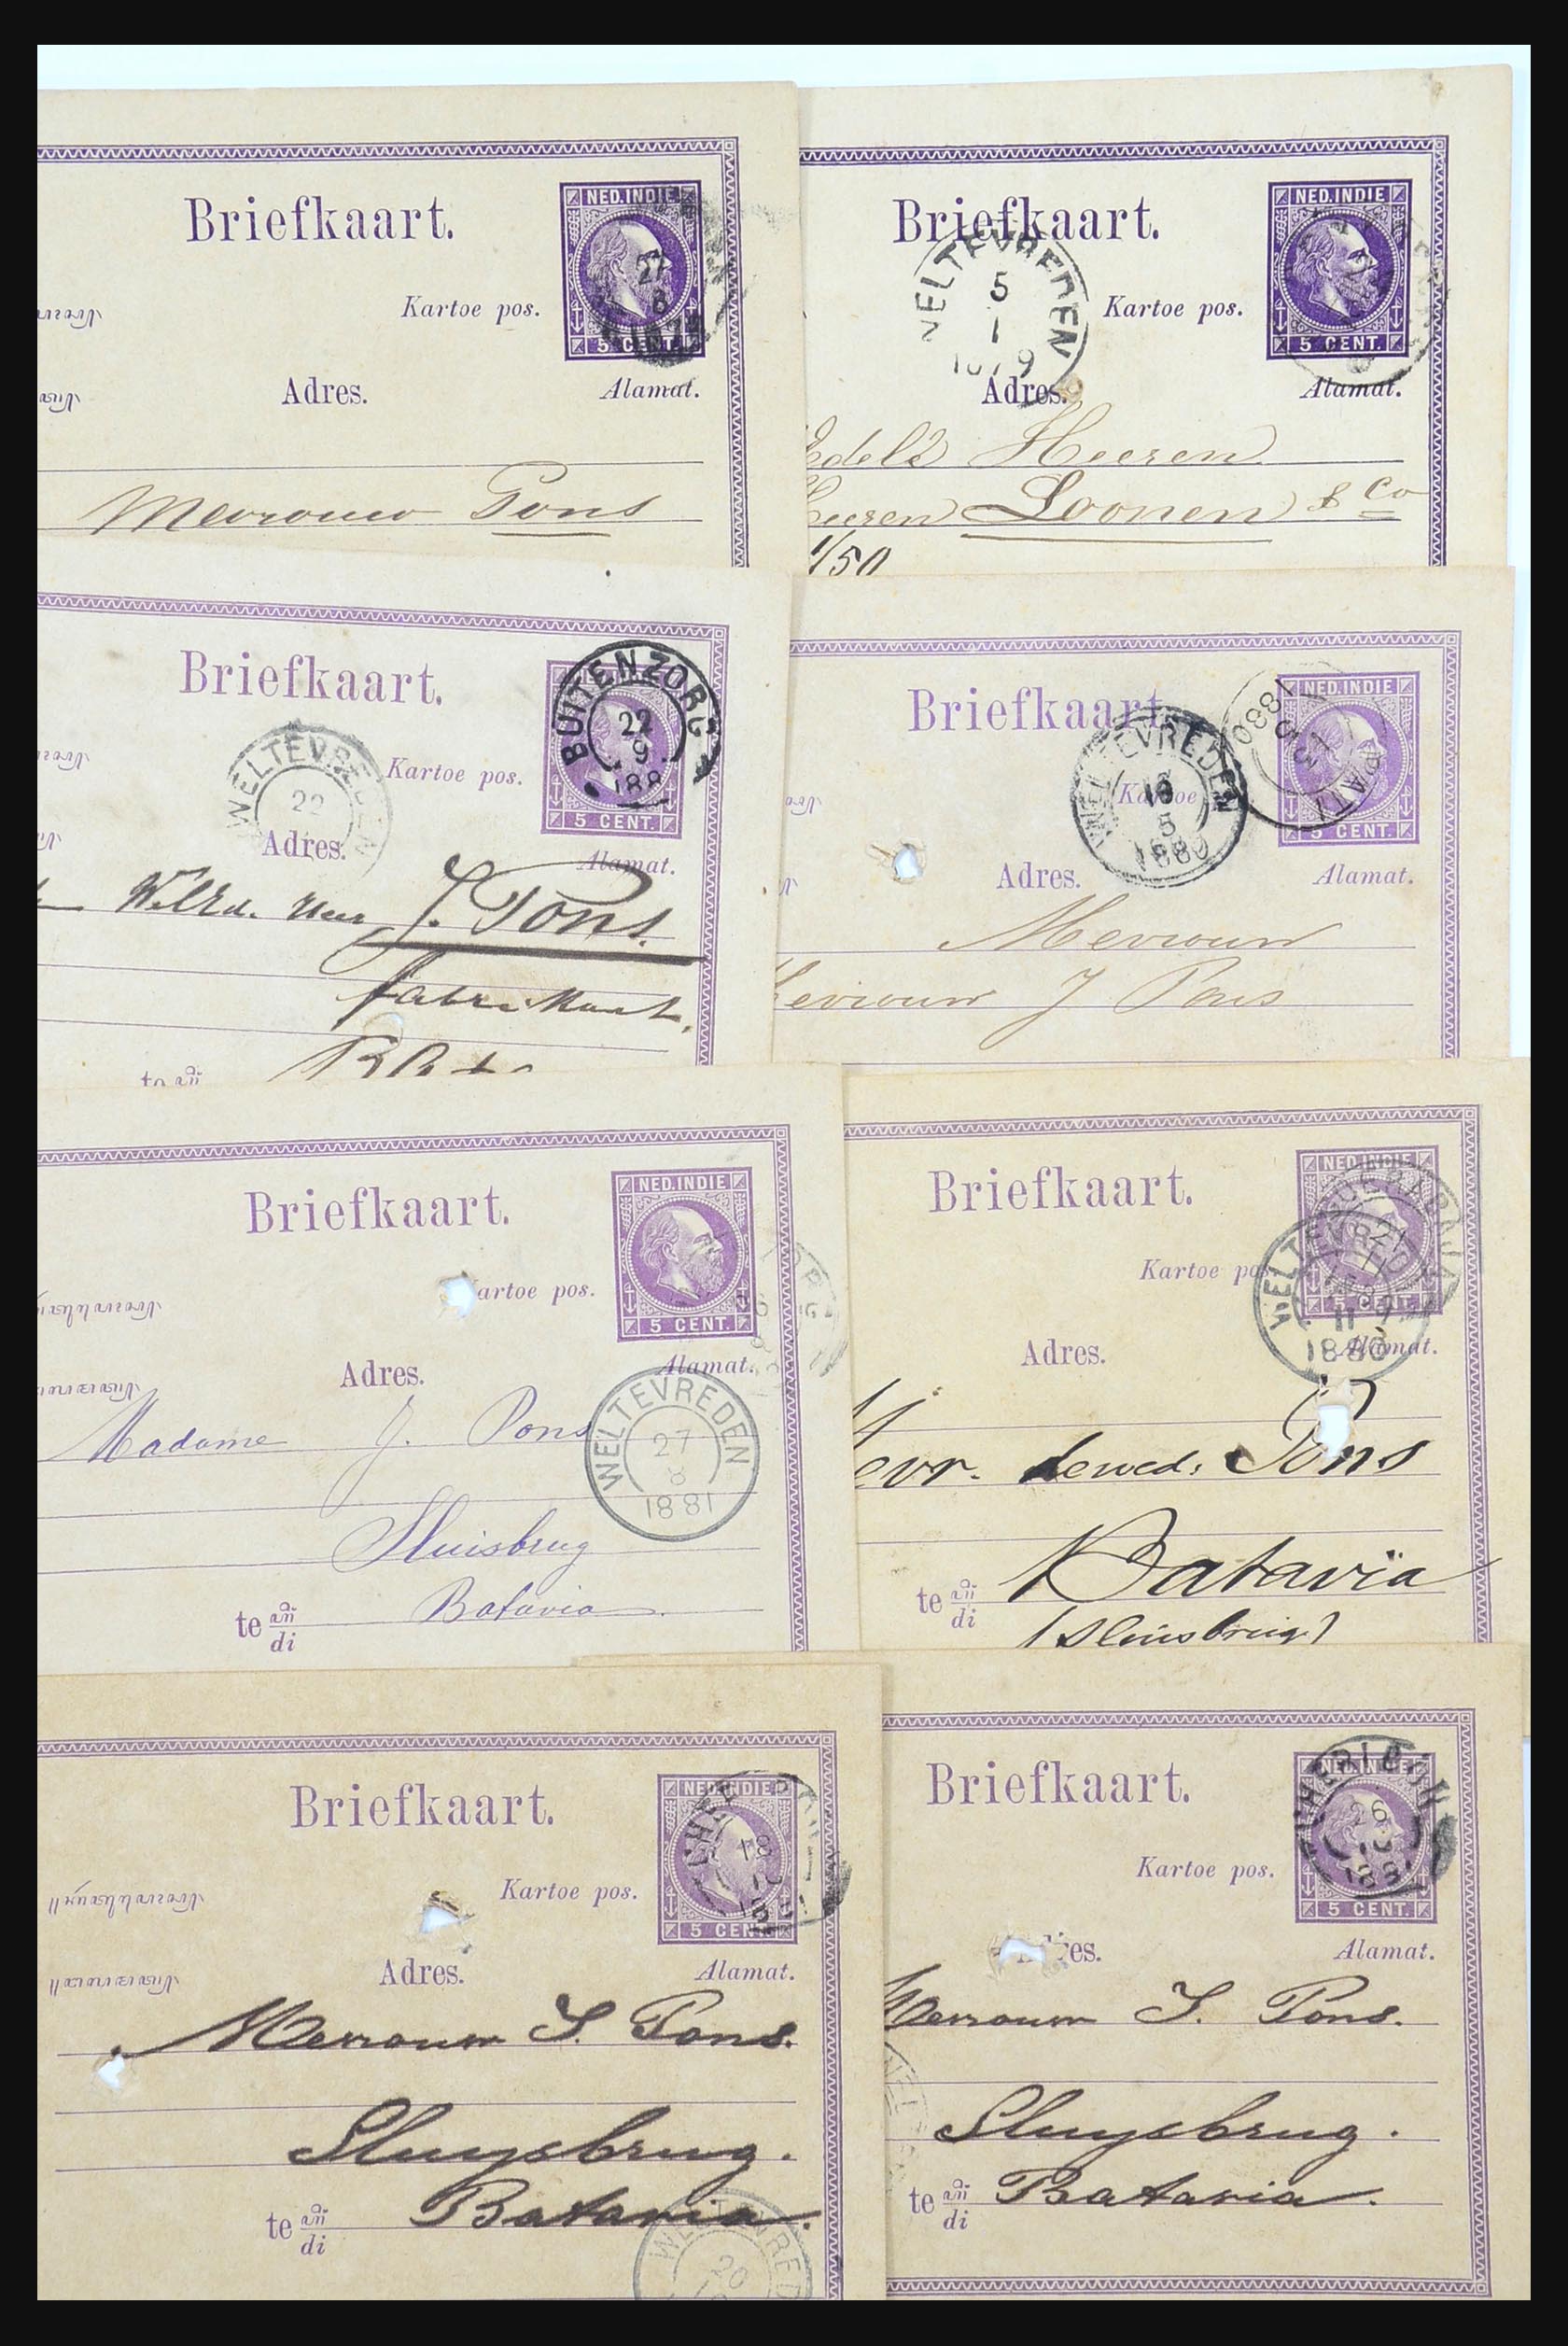 Briefkaart.
NED.INDIE
Kartoe pos.
27
8
5 CENT.
Adres.
Alamat.
Mevrouw Pons
Briefkaart.
NED.INDIE
WELTEVREDEN
5
1
1879
Kartoe pos.
5 CENT.
Adres.
Alamat.
Heeren
Loonen & Co
1/50
Briefkaart.
BUITENZORG
22
9
188
WELTEVREDEN
22
Kartoe pos.
5 CENT.
Adres.
Alamat.
J. Pons.
fabrikant.
te
Briefkaart.
NED.INDIE
1880
WELTEVREDEN
5
1880
Kartoe
5 CENT.
Adres.
Alamat.
Mevrouw
Mevrouw J Pons
Briefkaart.
NED.INDIE
Kartoe pos.
5 CENT.
Adres.
Alamat.
WELTEVREDEN
27
8
1881
Madame J. Pons
Sluisbrug
te di Batavia
Briefkaart.
NED.INDIE
Kartoe pos.
WELTEVREDEN
21
11
1880
Adres.
Alamat.
Mevr. de wed. Pons
te di Batavia
(Sluisbrug)
Briefkaart.
NED.INDIE
18
Kartoe pos.
5 CENT.
Adres.
Alamat.
Mevrouw J. Pons.
Sluysbrug.
te di Batavia.
WELTEVREDEN
20
Briefkaart.
CHERIBON
26
10
188
Kartoe pos.
5 CENT.
Adres.
Alamat.
Mevrouw J. Pons.
Sluysbrug.
te di Batavia.